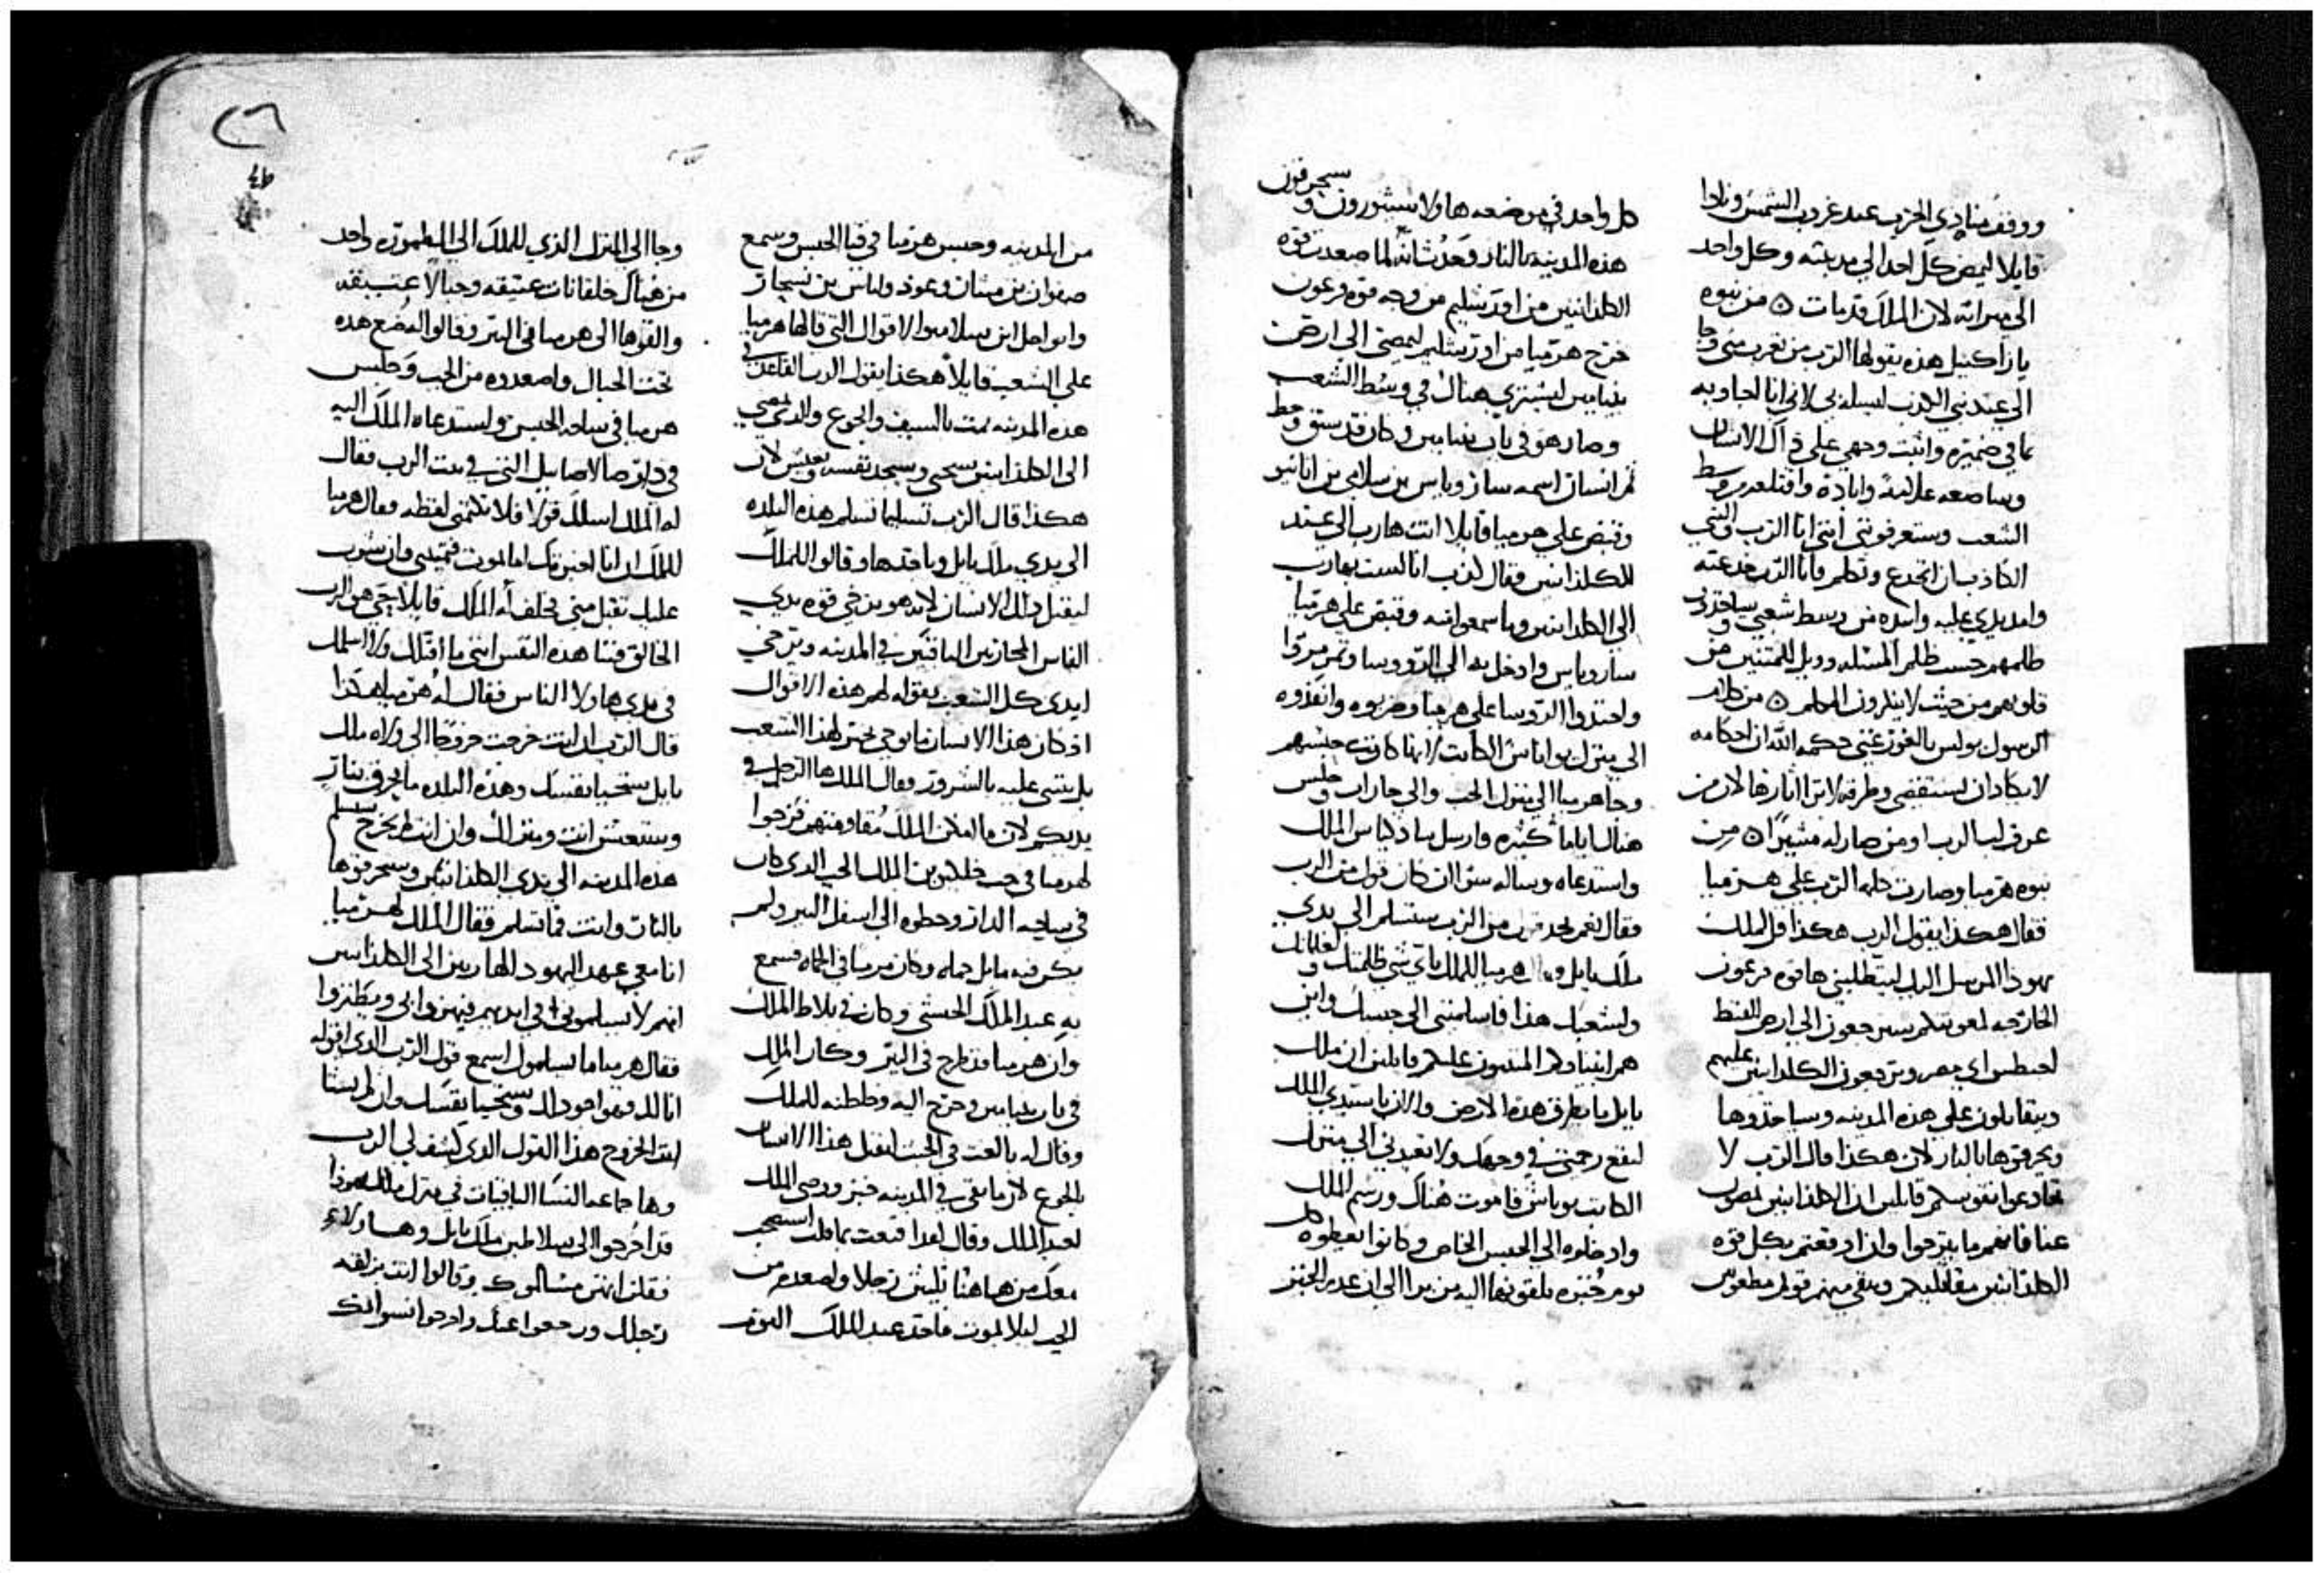 ووقف منادي الحرب عند غروب الشمس ونادا
قايلا ليمض كل احد الي مدينته وكل واحد
الي ميراثه لان الملك قد مات ۞ من نبوه
يازاكييل هذه يقولها الرب من تغرب مني وجا
الى عند نبي الكذب ليسله بي لاني انا اجاوبه
بما في ضميره واثبت وجهي على ذاك الانسان
وساضعه علانية وابادة واقتلعه من وسط
الشعب وستعرفونني انني انا الرب والنبي
الكاذب بان انخدع وتكلم فانا الرب خدعته
وامد يدي عليه وابيده من وسط شعبي وساخذون
ظلمهم حسب ظلم المسله وويل للمتنبين من
قلوبهم من حيث لا ينظرون الحلم ۞ من كلام
الرسول بولس بالغور غني حكمه الله ان احكامه
لا يكاد ان تستقصى وطرقه لا تري اثارها لان من
عرف لب الرب او من صار له مشيرا ۞ من
نبوه هرميا وصارت كلمه الرب على هرميا
فقال هكذا يقول الرب هكذا قل لملك
يهوذا المرسل اليك ليتطلبني ها قوه فرعون
الخارجه لمعونتكم سيرجعون الى ارض القبط
لحبطس اي مصر ويرجعون الكلدانيين عليهم
ويقاتلون علي هذه المدينه وساخذوها
ويحرقوها بالنار لان هكذا قال الرب لا
تخادعوا نفوسكم قايلين ان الكلدانيين يمضون
عنا فانهم ما يبرحوا وان اوقعتم بكل قوه
الكلدانيين مقاتليكم وبقي منهم قوم مطعونين
كل واحد في موضعه هاولا سيثورون وسيحرقون
هذه المدينه بالنار وحدث انه لما صعدت قوه
الكلدانيين من اورشليم من وجه قوه فرعون
خرج هرميا من اورشليم ليمضي الى ارض
بنيامين ليشتري هناك في وسط الشعب
وصار هو في باب بنيامين وكان قد سبق وحط
ثم انسان اسمه ساروياس بن سلامي بن انانيو
وقبض علي هرميا قايلا انت هارب الى عند
الكلدانيين فقال كذب انا لست بهارب
الى الكلدانيين وما سمعوا منه وقبض على هرميا
ساروياس وادخل به الى الروسا وتمرمروا
واحتدوا الروسا على هرميا وضربوه وانفذوه
الى منزل يواناس الكاتب لانها كانت حبسهم
وجا هرميا الي منزل الجب والي جاراب وجلس
هناك اياما كثيره وارسل سادكياس الملك
واستدعاه وساله سرا ان كان قول من الرب
فقال نعم يوجد من الرب ستسلم الي يدي
ملك بابل وقال هرميا للملك باي شي ظلمتك وغلمانك
ولشعبك هذا فاسلمتني الى حبسك واين
هم انبياوكم المتنبيون عليكم قايلين ان ملك
بابل ما يطرق هذه الارض والان يا سيدي الملك
لتقع رحمتي في وجهك ولا تعيدني الي منزل
الكاتب يوناس فاموت هناك ورسم الملك
وادخلوه الي الحبس الخاص وكانوا يعطوه كل
يوم خبزه يلقونها اليه من برا الي ان عدم الخبز
٢٦
من المدينه وحبس هرميا في قبا الحبس وسمع
صفوان بن مشان وغود ولياس بن نسجار
وايواحل ابن سلاميوا الاقوال التي قالها هرميا
علي الشعب قايلا هكذا يقول الرب القاعد في
هذه المدينه يمت بالسيف والجوع والذي يمضي
الى الكلدانيين سيحيى وسيجد نفسه ويعيش لان
هكذا قال الرب تسليما تسلم هذه البلده
الى يدي ملك بابل وياخذها وقالوا للملك
ليقتل ذلك الانسان لانه هو يرخي قوه يدي
الناس المحاربين الباقيين في المدينه ويرخي
ايدي كل الشعب بقوله لهم هذه الاقوال
اذ كان هذا الانسان ما يوحي بخير لهذا الشعب
بل يتنبى عليه بالشرور وقال الملك ها الرجل في
يديكم لان ما امكن الملك مقاومتهم فزجوا
لهرميا في جب خلايو بن الملك الجب الذي كان
في ساحه الدار وحطوه الي اسفل البير ولم
يكن فيه ما بل حماه وكان هرميا في الحماه فسمع
به عبد الملك الحبشي وكان في بلاط الملك
وان هرميا قد طرح في البير وكان الملك
في باب بنيامين وخرج اليه وخاطبه للملك
وقال له بالغت في الخبث لتقتل هذا الانسان
بالجوع لان ما بقي في المدينه خبز ووصى الملك
لعبد الملك وقال له اقنعت بما قلت استصحب
معك من هاهنا ثلثين رجلا واصعده من
الجب ليلا يموت فاخذ عبد الملك القوم
وجا الى المنزل الذي للملك الى المطموره واخذ
من هناك خلقانات عتيقه وحبالا عتيقه
والقوها الى هرميا في البير وقالوا له ضع هذه
تحت الحبال واصعدوه من الجب وجلس
هرميا في ساحه الحبس واستدعاه الملك اليه
في دار صالاصاييل التي في بيت الرب فقال
له الملك اسلك قولا فلا تكتمني لفظه وقال هرميا
للملك ان انا اخبرتك اماتموت فتميتني وان شورت
عليك تقبل مني فحلف له الملك قايلا حي هو الرب
الخالق فينا هذه النفس انني ما اقتلك ولا اسلمك
في يدي هاولا الناس فقال له هرميا هكذا
قال الرب ان انت خرجت خروجا الى ولاه ملك
بابل ستحيا نفسك وهذه البلده ما تحرق بنار
وستعيش انت ومنزلك وان انت لم تخرج ستسلم
هذه المدينه الي يدي الكلدانيين وسيحرقوها
بالنار وانت فما تسلم فقال الملك لهرميا
انا معي عهد اليهود الهاربين الى الكلدانيين
انهم لا يسلموني في ايديهم فيهزوا بي ويطنزوا
فقال هرميا ما يسلموك اسمع قول الرب الذي اقوله
انا لك فهو اجود لك وستحيا نفسك وان لم تشا
انت الخروج هذا القول الذي كشف لي الرب
وها جماعه النسا الباقيات في منزل ملك يهوذا
قد اخرجوا الى سلاطين ملك بابل وهاولاء
فقلن انهن مسالموك وقالوا انت بزلقه
رجلك ورجعوا عنك واخرجوا نسوانك